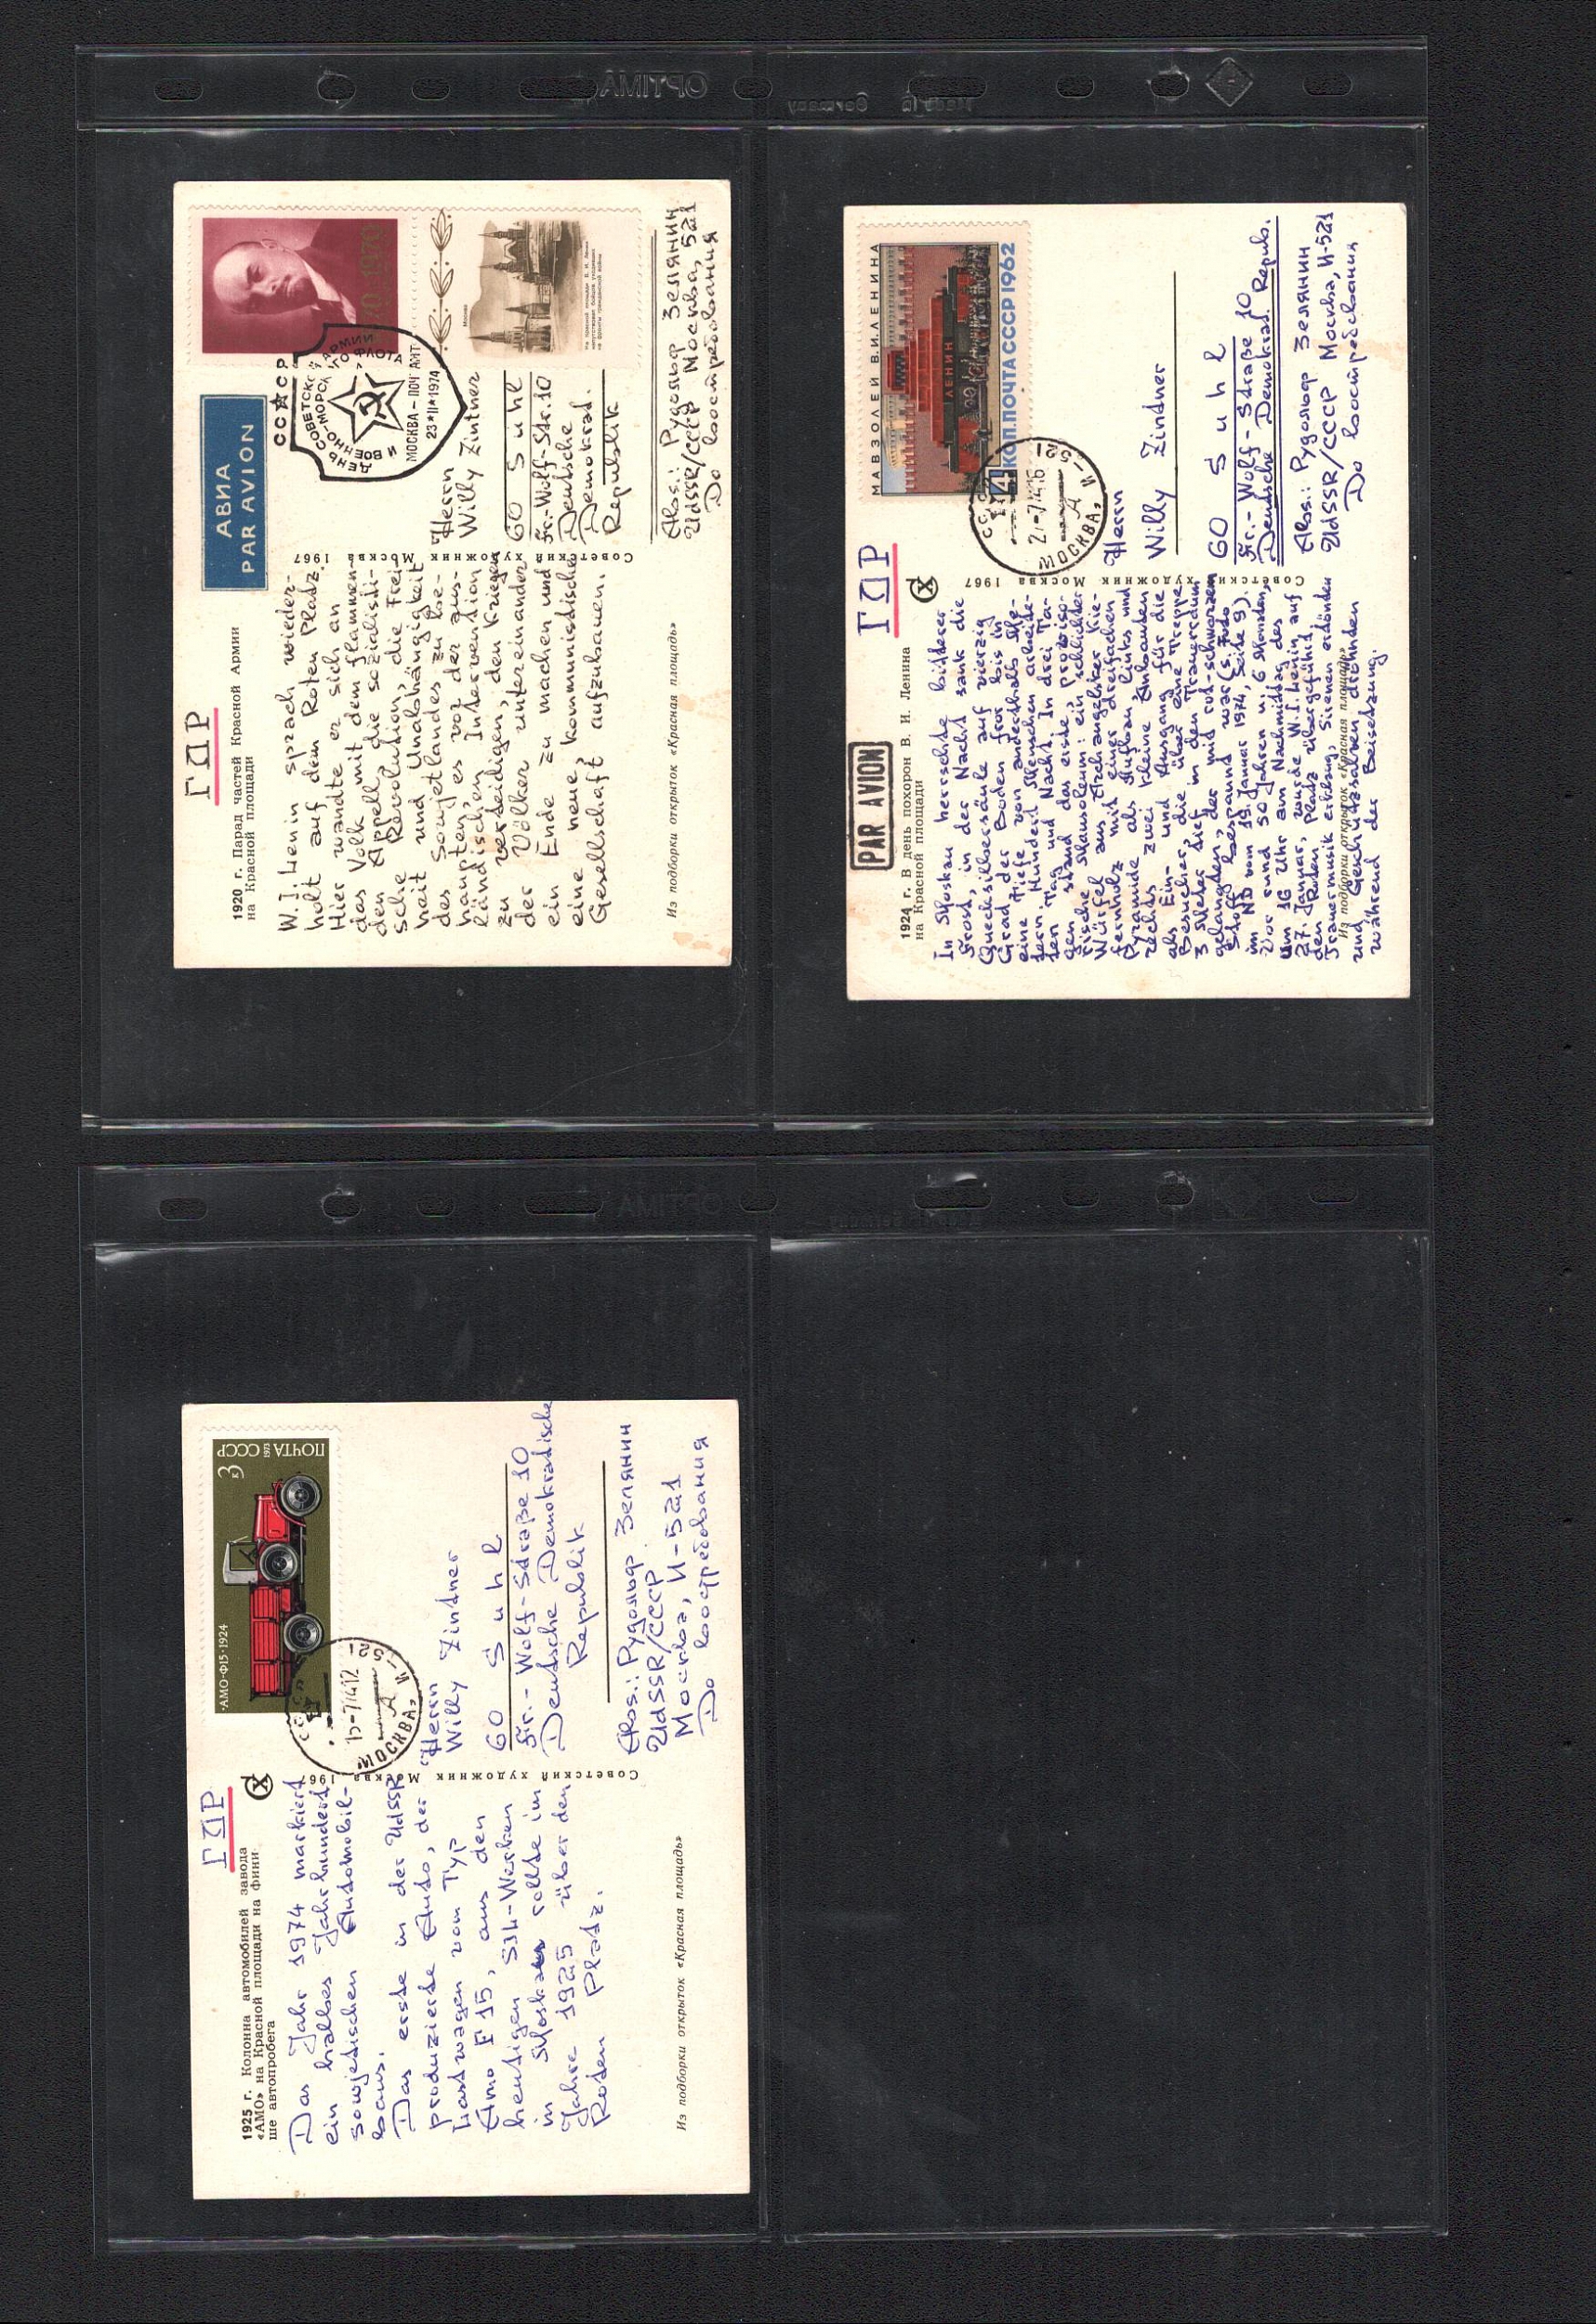 OPTIMA
Made in Germany
ГДР
1920 г. Парад частей Красной Армии
на Красной площади
W. I. Lenin sprach wieder-
holt auf dem Roten Platz.
Hier wandte er sich an
das Volk mit dem flammen-
den Appell, die sozialisti-
sche Revolution, die Frei-
heit und Unabhängigkeit
des Sowjetlandes zu be-
haupten, es vor der aus-
ländischen Intervention
zu verteidigen, den Kriegen
der Völker untereinander
ein Ende zu machen und
eine neue, kommunistische
Gesellschaft aufzubauen.
Из подборки открыток «Красная площадь»
Советский художник Москва 1967
АВИА
PAR AVION
СССР
ДЕНЬ СОВЕТСКОЙ АРМИИ
И ВОЕННО-МОРСКОГО ФЛОТА
МОСКВА - ПОЧТАМТ
23*II*1974
1970
Москва
Herrn
Willy Zintner
60 Suhl
Fr.-Wolf-Str. 10
Deutsche
Demokrat.
Republik
Abs.: Рудольф Зелянин
UdSSR/СССР Москва, 521
До востребования
PAR AVION
ГДР
1924 г. В день похорон В. И. Ленина
на Красной площади
In Moskau herrschte bitterer
Frost, in der Nacht sank die
Quecksilbersäule auf vierzig
Grad, der Boden fror bis in
eine Tiefe von anderthalb Me-
tern. Hundert Menschen arbeite-
ten Tag und Nacht. In drei Ta-
gen stand das erste, proviso-
rische Mausoleum: ein schlichter
Würfel aus Archangelsker Kie-
fernholz mit einer dreifachen
Pyramide als Aufbau, links und
rechts zwei kleine Anbauten
als Ein- und Ausgang für die
Besucher, die über eine Treppe
3 Meter tief in den Trauerdum
gelangten, der mit rot-schwarzem
Stoff bespannt war (s. Foto
im ND vom 19. Januar 1974, Seite 9).
Vor rund 50 Jahren u. 6 Monaten,
um 16 Uhr am Nachmittag des
27. Januar, wurde W. I. Lenin auf
den Roten Platz übergeführt,
Trauermusik erklang, Sirenen ertönten
und Geschützsalven dröhnten
während der Beisetzung.
Из подборки открыток «Красная площадь»
Советский художник Москва 1967
МАВЗОЛЕЙ В.И.ЛЕНИНА
ЛЕНИН
4 КОП. ПОЧТА СССР 1962
МОСКВА,
Herrn
Willy Zintner
60 Suhl
Fr.-Wolf-Straße 10
Deutsche Demokrat. Repub.
Abs.: Рудольф Зелянин
UdSSR/СССР Москва, И-521
До востребования
OPTIMA
ГДР
1925 г. Колонна автомобилей завода
«АМО» на Красной площади на фини-
ше автопробега
Das Jahr 1974 markiert
ein halbes Jahrhundert
sowjetischen Automobil-
baus.
Das erste in der UdSSR
produzierte Auto, der
Lastwagen vom Typ
Amo F 15, aus den
heutigen SIL-Werken
in Moskau rollte im
Jahre 1925 über den
Roten Platz.
Из подборки открыток «Красная площадь»
Советский художник Москва 1967
АМО-Ф15·1924
3к
ПОЧТА СССР
1973
МОСКВА,
Herrn
Willy Zintner
60 Suhl
Fr.-Wolf-Straße 10
Deutsche Demokratische
Republik
Abs.: Рудольф Зелянин
UdSSR/СССР
Москва, И-521
До востребования